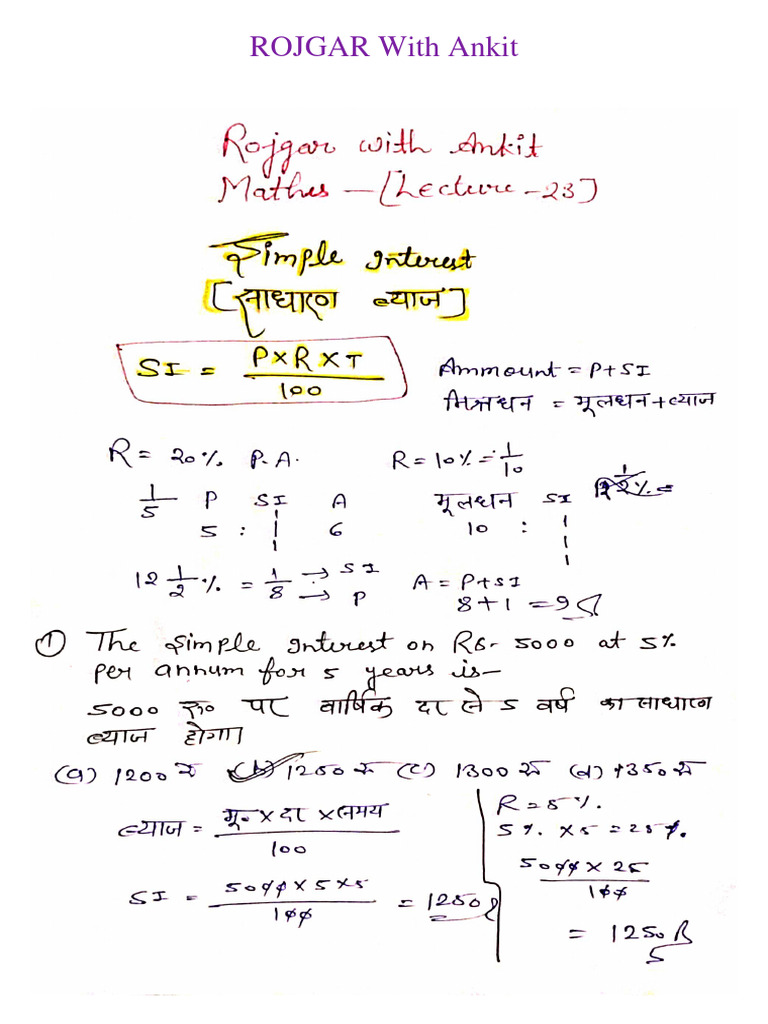 ROJGAR With Ankit
Rojgar with Ankit
Mathes — [Lecture - 23]
Simple Interest
[साधारण ब्याज]
SI = P×R×T / 100
Ammount = P+SI
मिश्रधन = मूलधन+ब्याज
R = 20% P.A.
R = 10% = 1/10
1/5 P SI A
मूलधन SI
5 : 1 6
10 : 1
1
1
1
12 1/2 % = 1/8 → SI
→ P
A = P+SI
8+1 = 9
① The Simple Interest on Rs. 5000 at 5%
per annum for 5 years is—
5000 रू० पर वार्षिक दर से 5 वर्ष का साधारण
ब्याज होगा।
(a) 1200 रू (b) 1250 रू (c) 1300 रू (d) 1350 रू
ब्याज = मू० × दर × समय / 100
SI = 5000 × 5 × 5 / 100 = 1250
R = 5%.
5% × 5 = 25%.
5000 × 25 / 100
= 1250 R